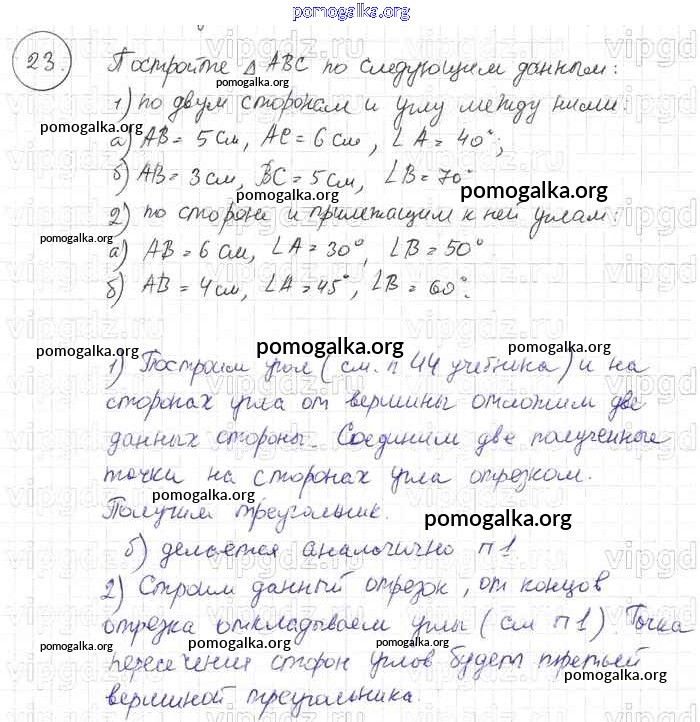 pomogalka.org
23. Постройте Δ ABC по следующим данным:
pomogalka.org
1) по двум сторонам и углу между ними:
pomogalka.org
а) AB = 5 см, AC = 6 см, ∠A = 40°;
pomogalka.org
б) AB = 3 см, BC = 5 см, ∠B = 70°
pomogalka.org
2) по стороне и прилежащим к ней углам:
pomogalka.org
а) AB = 6 см, ∠A = 30°, ∠B = 50°
б) AB = 4 см, ∠A = 45°, ∠B = 60°.
pomogalka.org pomogalka.org pomogalka.org
1) Построим угол (см. п 44 учебника) и на
сторонах угла от вершины отложим две
данных стороны. Соединим две полученные
точки на сторонах угла отрезком.
pomogalka.org
Получим треугольник.
pomogalka.org
б) делается аналогично п 1
2) Строим данный отрезок, от концов
отрезка откладываем углы (см п 1) Точка
pomogalka.org pomogalka.org pomogalka.org
пересечения сторон углов будет третьей
вершиной треугольника.